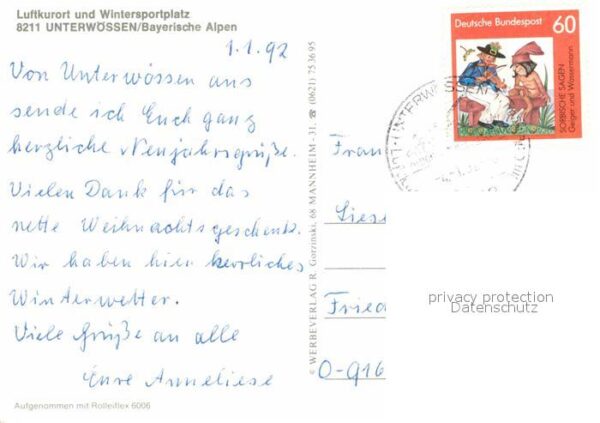 Luftkurort und Wintersportplatz
8211 UNTERWÖSSEN/Bayerische Alpen
1.1.92
Von Unterwössen aus
sende ich Euch ganz
herzliche Neujahrsgrüße.
Vielen Dank für das
nette Weihnachtsgeschenk.
Wir haben hier herrliches
Winterwetter.
Viele Grüße an alle
Eure Anneliese
Aufgenommen mit Rolleiflex 6006
© WERBEVERLAG R. Gorzinski, 68 MANNHEIM-31, ☎ (0621) 753695
Deutsche Bundespost 60
SORBISCHE SAGEN
Geiger und Wassermann
UNTERWÖSSEN
Frau
Liese
Fried
O-916
privacy protection
Datenschutz